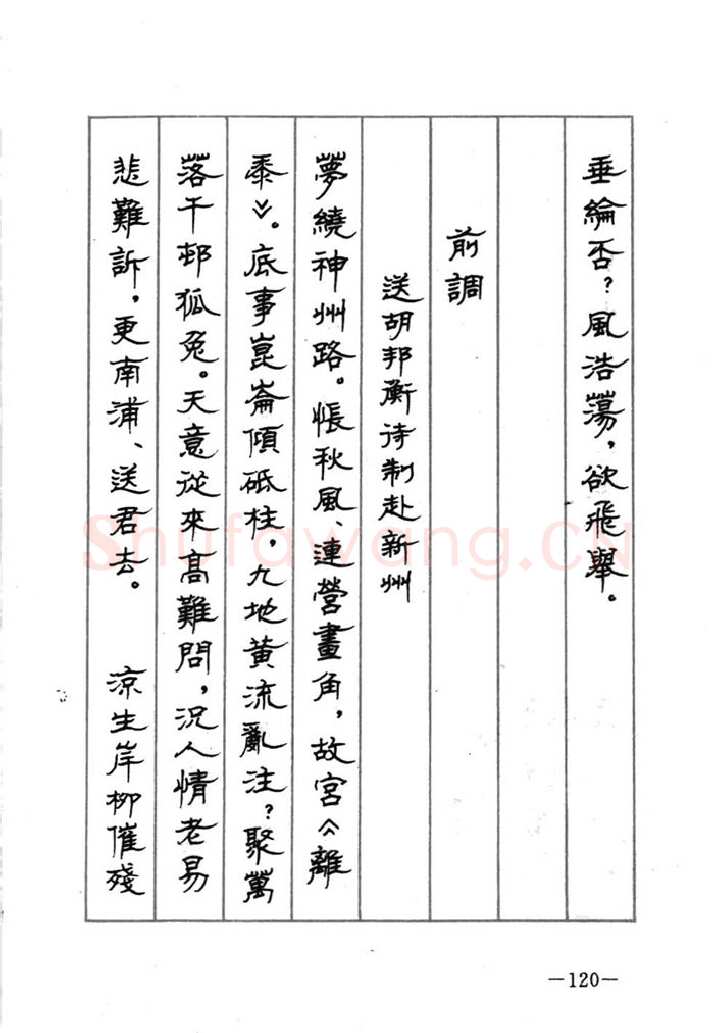 垂綸否?風浩蕩,欲飛舉。
前調
送胡邦衡待制赴新州
夢繞神州路。悵秋風、連營畫角,故宮離
黍。底事崑崙傾砥柱,九地黄流亂注?聚萬
落千邨狐兔。天意從來高難問,況人情老易
悲難訴,更南浦、送君去。 涼生岸柳催殘
—120—
Shufawang.CN